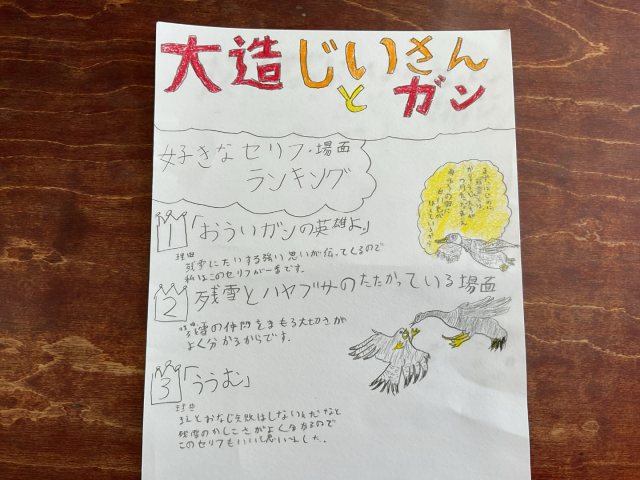 大造じいさん
とガン
好きなセリフ・場面
ランキング
1
「おういガンの英雄よ。」
理由
残雪にたいする強い思いが伝ってくるので
私はこのセリフが一番です。
2
残雪とハヤブサのたたかっている場面
理由
残雪の仲間をまもる大切さが
よく分かるからです。
3
「ううむ」
理由
おなじ失敗はしないんだなと
残雪のかしこさがよく分かるので
このセリフもいいと思いました。